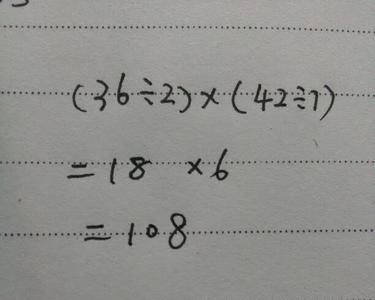 (36÷2)×(42÷7)
=18 ×6
=108